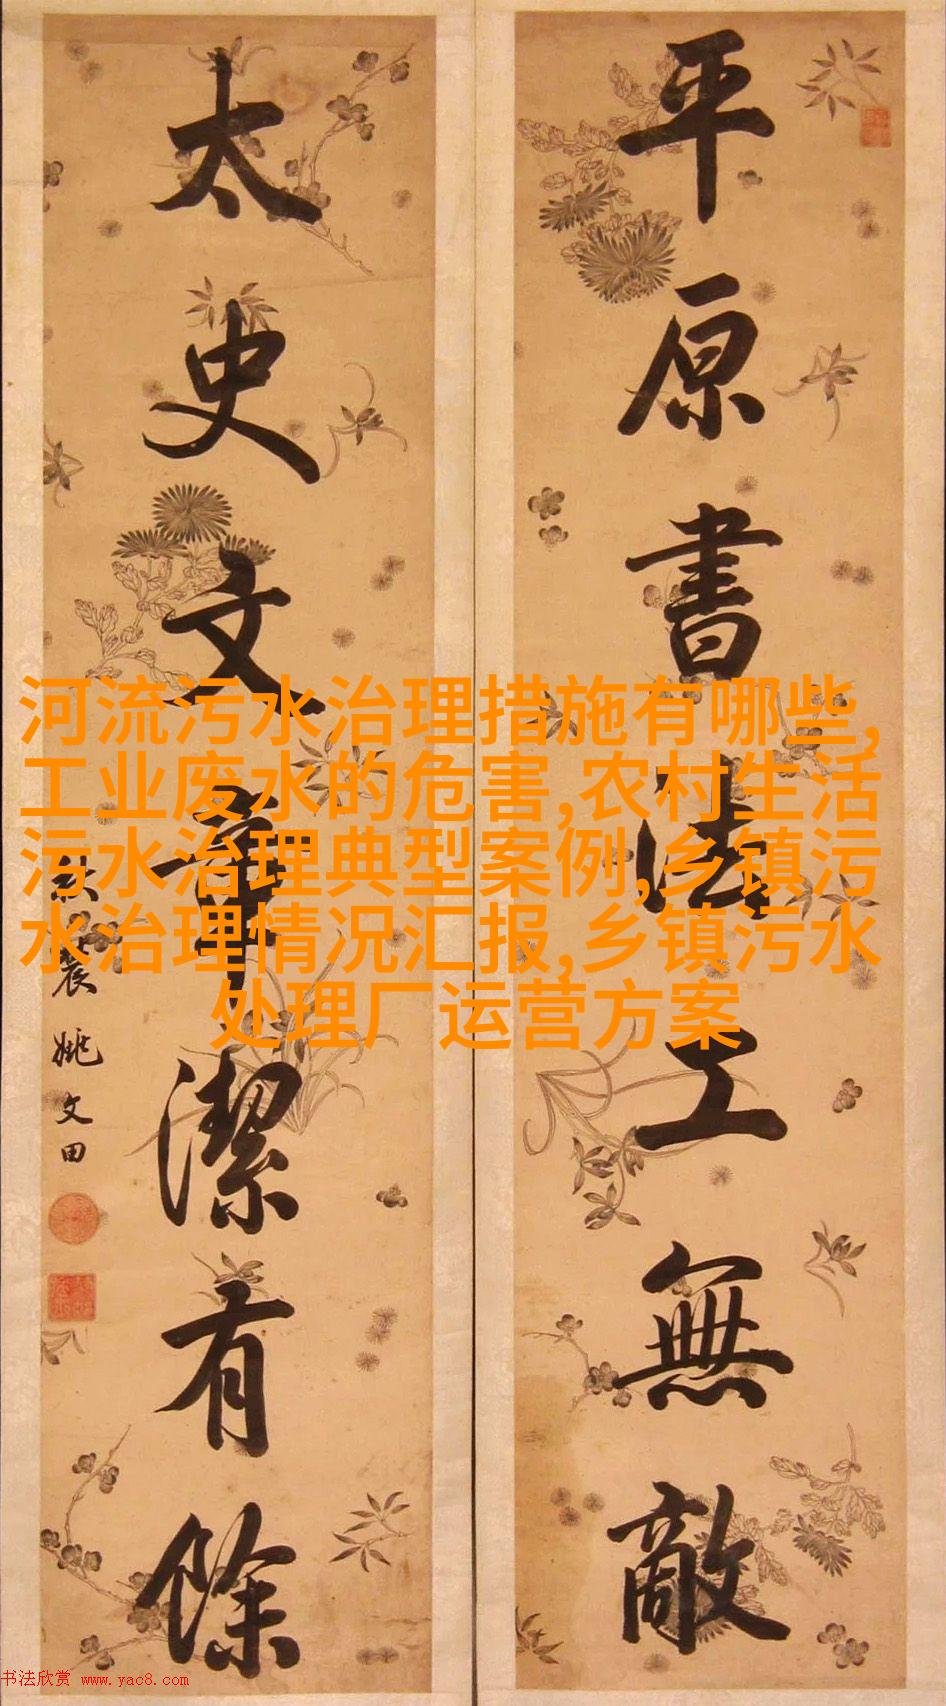 平原書法工無敵
太史文章潔有餘
秋農姚文田
河流污水治理措施有哪些,
工业废水的危害,农村生活
污水治理典型案例,乡镇污
水治理情况汇报,乡镇污水
处理厂运营方案
书法欣赏 www.yac8.com